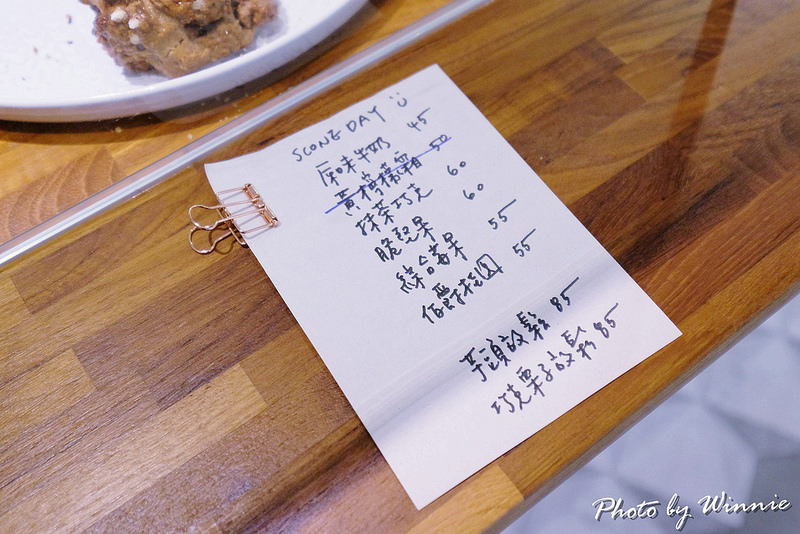 SCONE DAY
原味牛奶 45
黃檸檬霜 50
抹茶巧克 60
脆堅果 60
綜合莓果 55
伯爵桂圓 55
芋頭放鬆 85
巧克栗子放鬆 85
Photo by Winnie